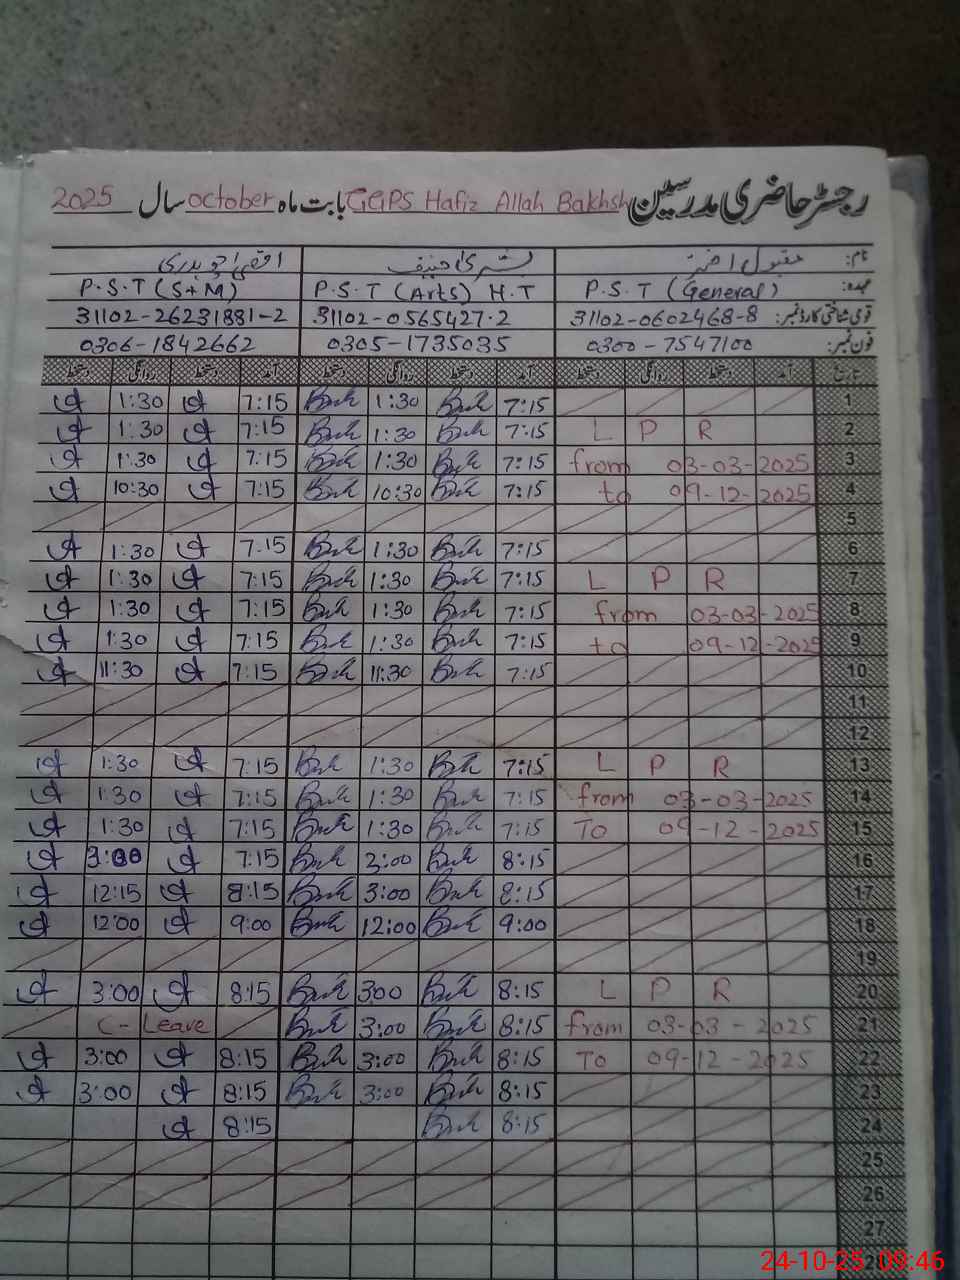 رجسٹر حاضری مدرسین GGPS Hafiz Allah Bakhsh بابت ماہ October سال 2025
نام: مقبول بشریٰ حنیف اقصیٰ چوہدری
عہدہ: P.S.T (General) P.S.T (Arts) H.T P.S.T (S+M)
قومی شناختی کارڈ نمبر: 31102-0602468-8 31102-0565427-2 31102-26231881-2
فون نمبر: 0300-7547100 0305-1735035 0306-1842662
تاریخ آمد دستخط روانگی دستخط آمد دستخط روانگی دستخط آمد دستخط روانگی دستخط
1 7:15 1:30 7:15 1:30
2 L P R 7:15 1:30 7:15 1:30
3 from 03-03-2025 7:15 1:30 7:15 1:30
4 to 09-12-2025 7:15 10:30 7:15 10:30
5
6 7:15 1:30 7:15 1:30
7 L P R 7:15 1:30 7:15 1:30
8 from 03-03-2025 7:15 1:30 7:15 1:30
9 to 09-12-2025 7:15 1:30 7:15 1:30
10 7:15 11:30 7:15 11:30
11
12
13 L P R 7:15 1:30 7:15 1:30
14 from 03-03-2025 7:15 1:30 7:15 1:30
15 To 09-12-2025 7:15 1:30 7:15 1:30
16 8:15 3:00 7:15 3:00
17 8:15 3:00 8:15 12:15
18 9:00 12:00 9:00 12:00
19
20 L P R 8:15 3:00 8:15 3:00
21 from 03-03-2025 8:15 3:00 C-Leave
22 To 09-12-2025 8:15 3:00 8:15 3:00
23 8:15 3:00 8:15 3:00
24 8:15 8:15
25
26
27
24-10-25 09:46